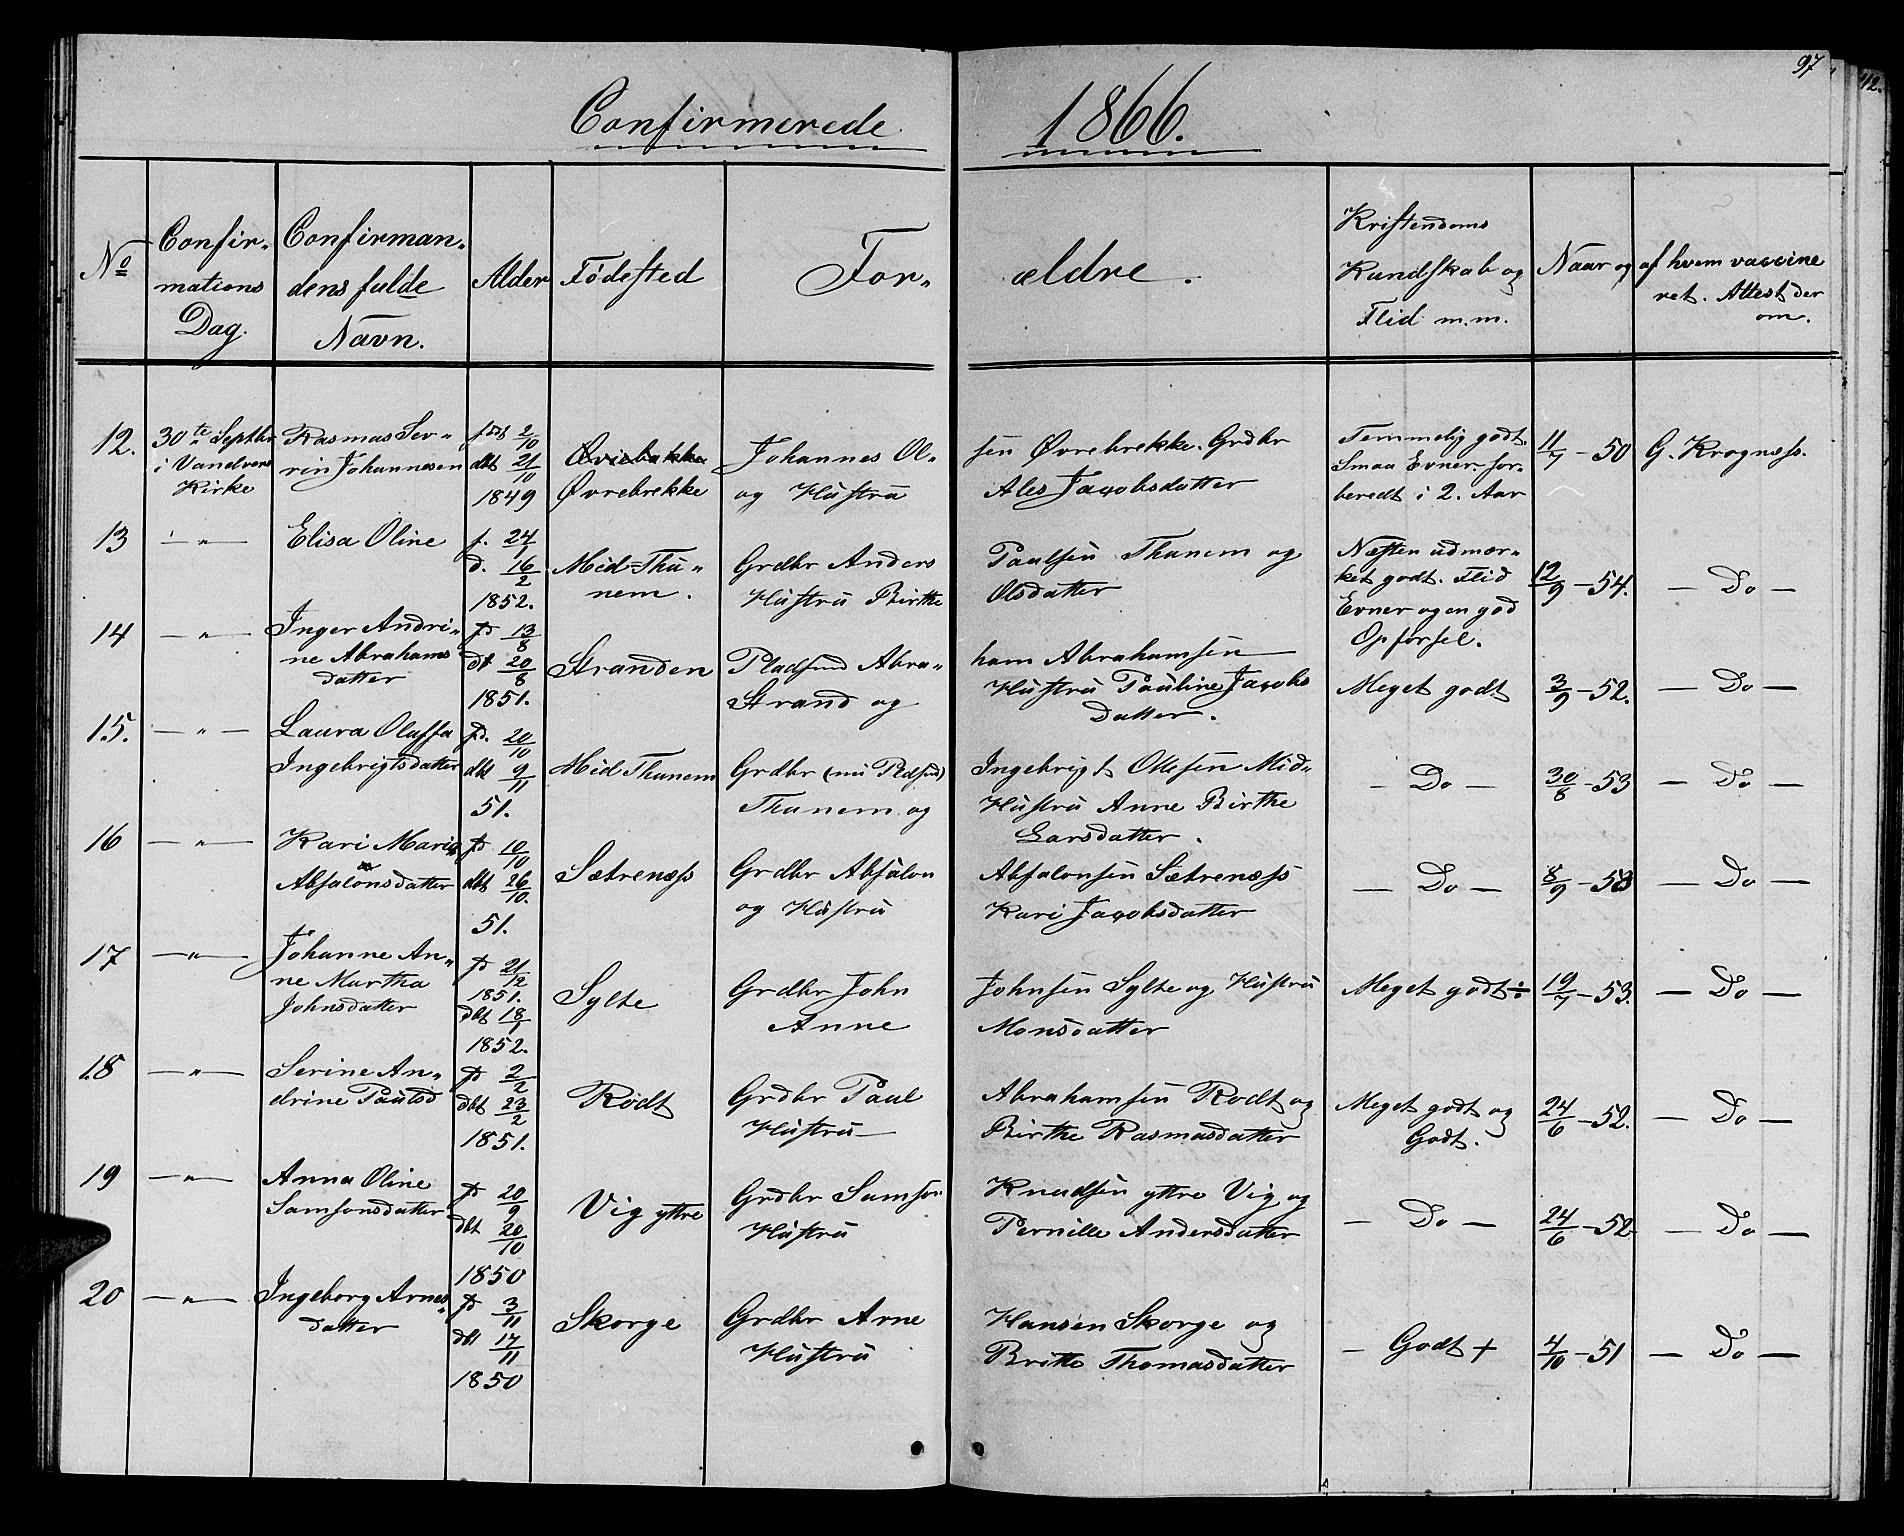 97
42.
Confirmerede 1866.
No
Confir-
mations
Dag.
Confirman-
dens fulde
Navn.
Alder
Fødested
For- ældre.
Kristendoms
Kundskab og
Flid m.m.
Naar og af hvem vaccine
ret. Attest der
om.
12. 30te Septbr
i Vandvens
Kirke
Rasmus Sev-
rin Johannesen
fdt 2/10
dbt 21/10
1849
Øvrebrekke
Johannes Ol- sen Øvrebrekke. Grdbr
og Hustru Ales Jacobsdatter
Temmelig godt.
Smaa Evner for-
beredt i 2. Aar
11/7 - 50 G. Krogness.
13 - " - Elisa Oline
f. 24/1
d. 16/2
1852.
Mid-Thu-
nem.
Grdbr Anders Paulsen Thunem og
Hustru Birthe Olsdatter
Næsten udmær-
ket godt. Flid
Evner og en god
Opførsel.
12/9 - 54. - Do -
14 - " - Inger Andri-
ne Abrahams
datter
fd 13/8
dt 20/8
1851.
Stranden
Pladsmd Abra- ham Abrahamsen
Strand og Hustru Pauline Jacobs
Datter.
Meget godt
3/9 - 52. - Do -
15. - " - Laura Oluffa
Ingebrigtsdatter
fd. 20/10
dbt 9/11
51.
Mid Thunem
Grdbr (nu Pladsmd) Ingebrigt Olesen Mid-
Thunem og Hustru Anne Birthe
Larsdatter.
- Do -
30/8 - 53 - Do -
16 - " - Kari Marie
Absalonsdatter
fd 10/10
dbt 26/10.
51.
Sætrenæss
Grdbr Absalon Absalonsen Sætrenæss
og Hustru Kari Jacobsdatter
- Do -
8/9 - 53 - Do -
17 - " - Johanne An-
ne Martha
Johnsdatter
fd 21/12
1851.
dbt 18/1
1852.
Sylte
Grdbr John Johnsen Sylte og Hustru
Anne Monsdatter
Meget godt ÷
19/7 - 53. - Do -
18 - " - Serine An-
drine Paulsd
fd 2/2
dbt 23/2
1851.
Rødt
Grdbr Paul Abrahamsen Rødt og
Hustru Birthe Rasmusdatter
Meget godt og
Godt.
24/6 - 52. - Do -
19 - " - Anna Oline
Samsonsdatter
fd 20/9
dbt 20/10
1850
Vig yttre
Grdbr Samson Knudsen yttre Vig og
Hustru Pernille Andersdatter
- Do -
24/6 - 52 - Do -
20 - " - Ingeborg Arnes-
datter
fd 3/11
dbt 17/11
1850
Skorge
Grdbr Arne Hansen Skorge og
Hustru Britte Thomasdatter
- Godt +
4/10 - 51 - Do -